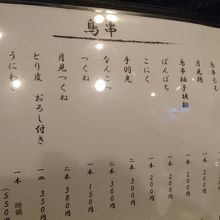 鳥串
月見鶏
鳥串柚子胡椒
ぼんぼち 一本 200円
こにく 一本 200円
手羽先 二本 300円
なんこつ 二本 300円
つくね 一本 150円
月見つくね 二本 380円
とり皮 おろし付き 一皿 350円
うにわさ 一本 時価